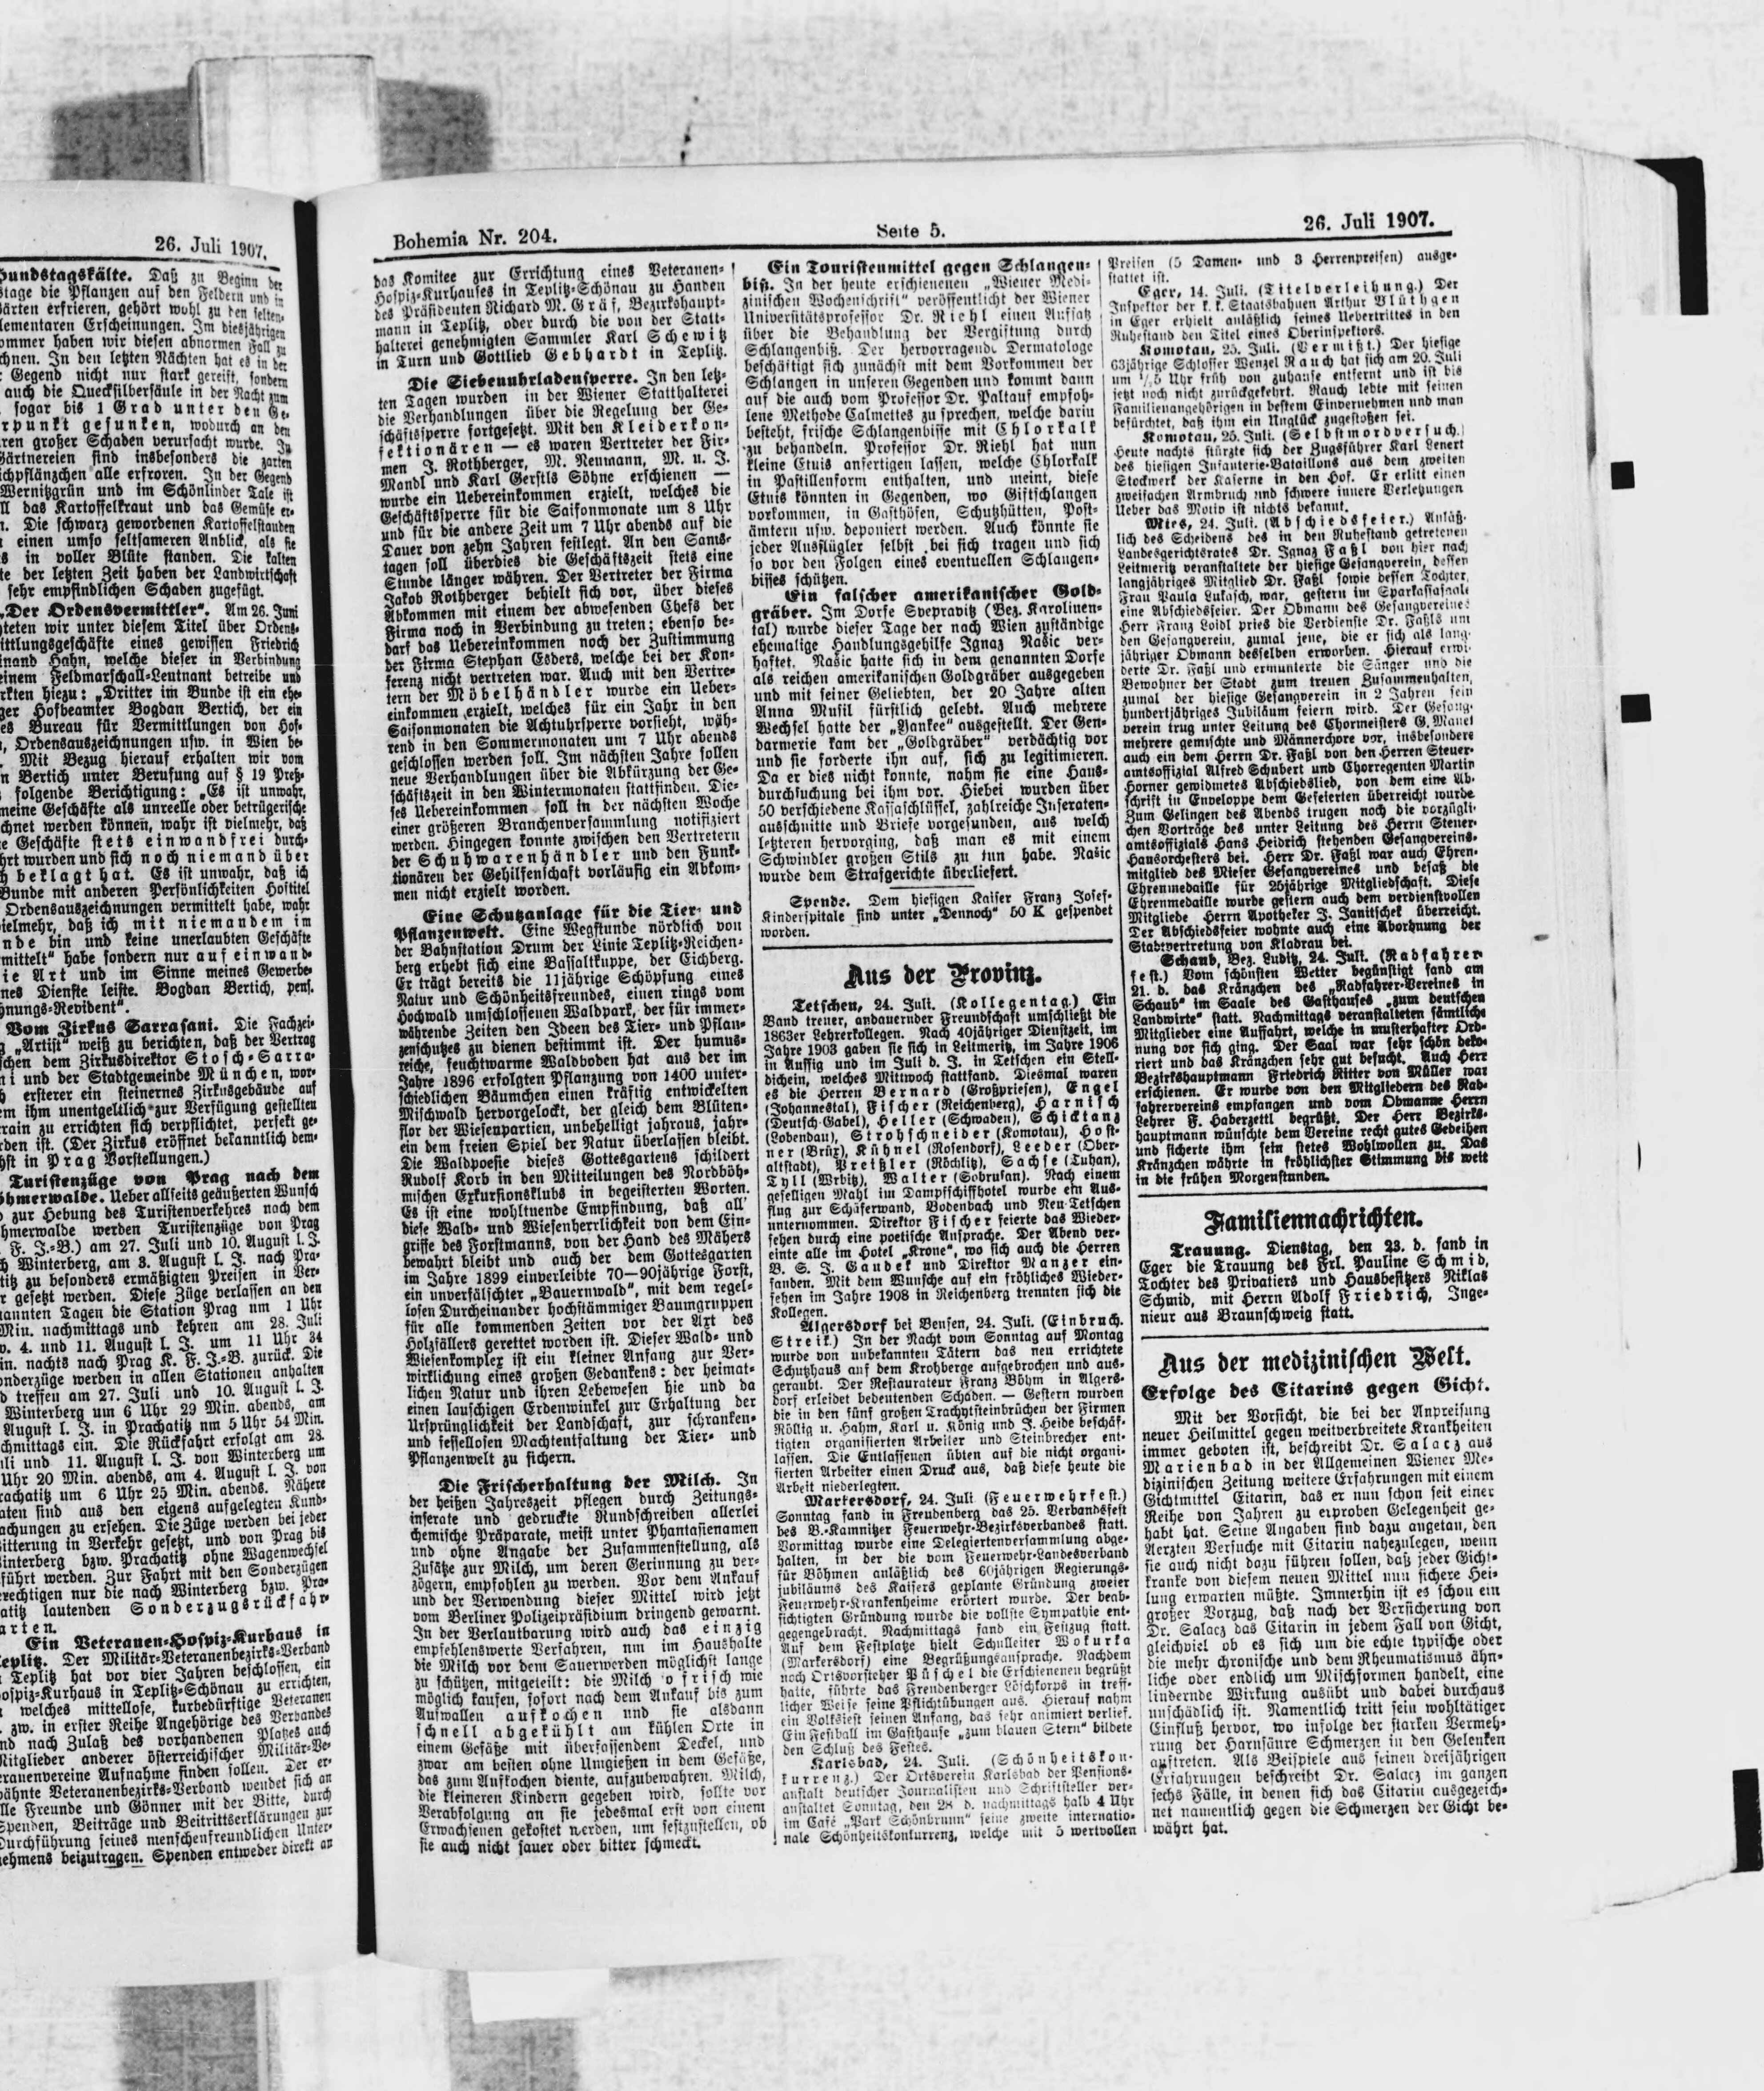 26. Juli 1907.
Hundstagskälte. Daß zu Beginn der
die Pflanzen auf den Feldern und in
erfrieren, gehört wohl zu den selten-
Erscheinungen. Im diesjährigen
haben wir diesen abnormen Fall zu
In den letzten Nächten hat es in der
Gegend nicht nur stark gereift, sondern
auch die Quecksilbersäule in der Nacht zum
sogar bis 1 Grad unter den Ge-
gesunken, wodurch an den
großer Schaden verursacht wurde. In
sind insbesonders die zarten
alle erfroren. In der Gegend
Wernitzgrün und im Schönlinder Tale ist
das Kartoffelkraut und das Gemüse er-
Die schwarz gewordenen Kartoffelstauden
einen umso seltsameren Anblick, als sie
in voller Blüte standen. Die kalten
der letzten Zeit haben der Landwirtschaft
sehr empfindlichen Schaden zugefügt.
„Der Ordensvermittler“. Am 26. Juni
wir unter diesem Titel über Ordens-
eines gewissen Friedrich
Hahn, welche dieser in Verbindung
einem Feldmarschall-Leutnant betreibe und
hiezu: „Dritter im Bunde ist ein ehe-
Hofbeamter Bogdan Bertich, der ein
Bureau für Vermittlungen von Hof-
Ordensauszeichnungen usw. in Wien be-
Mit Bezug hierauf erhalten wir vom
Bertich unter Berufung auf § 19 Preß-
folgende Berichtigung: „Es ist unwahr,
meine Geschäfte als unreelle oder betrügerische
werden können, wahr ist vielmehr, daß
Geschäfte stets einwandfrei durch-
wurden und sich noch niemand über
beklagt hat. Es ist unwahr, daß ich
Bunde mit anderen Persönlichkeiten Hoftitel
Ordensauszeichnungen vermittelt habe, wahr
vielmehr, daß ich mit niemandem im
bin und keine unerlaubten Geschäfte
habe sondern nur auf einwand-
Art und im Sinne meines Gewerbe-
Dienste leiste. Bogdan Bertich, pens.
Vom Zirkus Sarrasani. Die Fachzei-
„Artist“ weiß zu berichten, daß der Vertrag
dem Zirkusdirektor Stosch-Sarra-
und der Stadtgemeinde München, wor-
ersterer ein steinernes Zirkusgebäude auf
ihm unentgeltlich zur Verfügung gestellten
zu errichten sich verpflichtet, perfekt ge-
ist. (Der Zirkus eröffnet bekanntlich dem-
in Prag Vorstellungen.)
Turistenzüge von Prag nach dem
Böhmerwalde. Ueber allseits geäußerten Wunsch
zur Hebung des Turistenverkehres nach dem
werden Turistenzüge von Prag
F. J.-B.) am 27. Juli und 10. August l. J.
Winterberg, am 3. August l. J. nach Pra-
zu besonders ermäßigten Preisen in Ver-
gesetzt werden. Diese Züge verlassen an den
Tagen die Station Prag um 1 Uhr
Min. nachmittags und kehren am 28. Juli
4. und 11. August l. J. um 11 Uhr 34
nachts nach Prag K. F. J.-B. zurück. Die
werden in allen Stationen anhalten
treffen am 27. Juli und 10. August l. J.
Winterberg um 6 Uhr 29 Min. abends, am
August l. J. in Prachatitz um 5 Uhr 54 Min.
ein. Die Rückfahrt erfolgt am 28.
und 11. August l. J. von Winterberg um
Uhr 20 Min. abends, am 4. August l. J. von
um 6 Uhr 25 Min. abends. Nähere
sind aus den eigens aufgelegten Kund-
zu ersehen. Die Züge werden bei jeder
in Verkehr gesetzt, und von Prag bis
bzw. Prachatitz ohne Wagenwechsel
werden. Zur Fahrt mit den Sonderzügen
nur die nach Winterberg bzw. Pra-
lautenden Sonderzugsrückfahr-
Ein Veteranen-Hospiz-Kurhaus in
Teplitz. Der Militär-Veteranenbezirks-Verband
Teplitz hat vor vier Jahren beschlossen, ein
in Teplitz-Schönau zu errichten,
welches mittellose, kurbedürftige Veteranen
zw. in erster Reihe Angehörige des Verbandes
nach Zulaß des vorhandenen Platzes auch
Mitglieder anderer österreichischer Militär-Ve-
Aufnahme finden sollen. Der er-
Veteranenbezirks-Verband wendet sich an
Freunde und Gönner mit der Bitte, durch
Spenden, Beiträge und Beitrittserklärungen zur
Durchführung seines menschenfreundlichen Unter-
nehmens beizutragen. Spenden entweder direkt an
Bohemia Nr. 204.
Seite 5.
26. Juli 1907.
das Komitee zur Errichtung eines Veteranen-
Hospiz-Kurhauses in Teplitz-Schönau zu Handen
des Präsidenten Richard M. Gräf, Bezirkshaupt-
mann in Teplitz, oder durch die von der Statt-
halterei genehmigten Sammler Karl Schewitz
in Turn und Gottlieb Gebhardt in Teplitz.
Die Siebenuhrladensperre. In den letz-
ten Tagen wurden in der Wiener Statthalterei
die Verhandlungen über die Regelung der Ge-
schäftssperre fortgesetzt. Mit den Kleiderkon-
fektionären — es waren Vertreter der Fir-
men J. Rothberger, M. Neumann, M. u. J.
Mandl und Karl Gerstls Söhne erschienen —
wurde ein Uebereinkommen erzielt, welches die
Geschäftssperre für die Saisonmonate um 8 Uhr
und für die andere Zeit um 7 Uhr abends auf die
Dauer von zehn Jahren festlegt. An den Sams-
tagen soll überdies die Geschäftszeit stets eine
Stunde länger währen. Der Vertreter der Firma
Jakob Rothberger behielt sich vor, über dieses
Abkommen mit einem der abwesenden Chefs der
Firma noch in Verbindung zu treten; ebenso be-
darf das Uebereinkommen noch der Zustimmung
der Firma Stephan Esders, welche bei der Kon-
ferenz nicht vertreten war. Auch mit den Vertre-
tern der Möbelhändler wurde ein Ueber-
einkommen erzielt, welches für ein Jahr in den
Saisonmonaten die Achtuhrsperre vorsieht, wäh-
rend in den Sommermonaten um 7 Uhr abends
geschlossen werden soll. Im nächsten Jahre sollen
neue Verhandlungen über die Abkürzung der Ge-
schäftszeit in den Wintermonaten stattfinden. Die-
ses Uebereinkommen soll in der nächsten Woche
einer größeren Branchenversammlung notifiziert
werden. Hingegen konnte zwischen den Vertretern
der Schuhwarenhändler und den Funk-
tionären der Gehilfenschaft vorläufig ein Abkom-
men nicht erzielt worden.
Eine Schutzanlage für die Tier- und
Pflanzenwelt. Eine Wegstunde nördlich von
der Bahnstation Drum der Linie Teplitz-Reichen-
berg erhebt sich eine Bassaltkuppe, der Eichberg.
Er trägt bereits die 11jährige Schöpfung eines
Natur und Schönheitsfreundes, einen rings vom
Hochwald umschlossenen Waldpark, der für immer-
währende Zeiten den Ideen des Tier- und Pflan-
zenschutzes zu dienen bestimmt ist. Der humus-
reiche, feuchtwarme Waldboden hat aus der im
Jahre 1896 erfolgten Pflanzung von 1400 unter-
schiedlichen Bäumchen einen kräftig entwickelten
Mischwald hervorgelockt, der gleich dem Blüten-
flor der Wiesenpartien, unbehelligt jahraus, jahr-
ein dem freien Spiel der Natur überlassen bleibt.
Die Waldpoesie dieses Gottesgartens schildert
Rudolf Korb in den Mitteilungen des Nordböh-
mischen Exkursionsklubs in begeisterten Worten.
Es ist eine wohltuende Empfindung, daß all'
diese Wald- und Wiesenherrlichkeit von dem Ein-
griffe des Forstmanns, von der Hand des Mähers
bewahrt bleibt und auch der dem Gottesgarten
im Jahre 1899 einverleibte 70—90jährige Forst,
ein unverfälschter „Bauernwald“, mit dem regel-
losen Durcheinander hochstämmiger Baumgruppen
für alle kommenden Zeiten vor der Axt des
Holzfällers gerettet worden ist. Dieser Wald- und
Wiesenkomplex ist ein kleiner Anfang zur Ver-
wirklichung eines großen Gedankens: der heimat-
lichen Natur und ihren Lebewesen hie und da
einen lauschigen Erdenwinkel zur Erhaltung der
Ursprünglichkeit der Landschaft, zur schranken-
und fessellosen Machtentfaltung der Tier- und
Pflanzenwelt zu sichern.
Die Frischerhaltung der Milch. In
der heißen Jahreszeit pflegen durch Zeitungs-
inserate und gedruckte Rundschreiben allerlei
chemische Präparate, meist unter Phantasienamen
und ohne Angabe der Zusammenstellung, als
Zusätze zur Milch, um deren Gerinnung zu ver-
zögern, empfohlen zu werden. Vor dem Ankauf
und der Verwendung dieser Mittel wird jetzt
vom Berliner Polizeipräsidium dringend gewarnt.
In der Verlautbarung wird auch das einzig
empfehlenswerte Verfahren, um im Haushalte
die Milch vor dem Sauerwerden möglichst lange
zu schützen, mitgeteilt: die Milch so frisch wie
möglich kaufen, sofort nach dem Ankauf bis zum
Aufwallen aufkochen und sie alsdann
schnell abgekühlt am kühlen Orte in
einem Gefäße mit überfassendem Deckel, und
zwar am besten ohne Umgießen in dem Gefäße,
das zum Aufkochen diente, aufzubewahren. Milch,
die kleineren Kindern gegeben wird, sollte vor
Verabfolgung an sie jedesmal erst von einem
Erwachsenen gekostet werden, um festzustellen, ob
sie auch nicht sauer oder bitter schmeckt.
Ein Touristenmittel gegen Schlangen-
biß. In der heute erschienenen „Wiener Medi-
zinischen Wochenschrift“ veröffentlicht der Wiener
Universitätsprofessor Dr. Riehl einen Aufsatz
über die Behandlung der Vergiftung durch
Schlangenbiß. Der hervorragende Dermatologe
beschäftigt sich zunächst mit dem Vorkommen der
Schlangen in unseren Gegenden und kommt dann
auf die auch vom Professor Dr. Paltauf empfoh-
lene Methode Calmettes zu sprechen, welche darin
besteht, frische Schlangenbisse mit Chlorkalk
zu behandeln. Professor Dr. Riehl hat nun
kleine Etuis anfertigen lassen, welche Chlorkalk
in Pastillenform enthalten, und meint, diese
Etuis könnten in Gegenden, wo Giftschlangen
vorkommen, in Gasthöfen, Schutzhütten, Post-
ämtern usw. deponiert werden. Auch könnte sie
jeder Ausflügler selbst bei sich tragen und sich
so vor den Folgen eines eventuellen Schlangen-
bisses schützen.
Ein falscher amerikanischer Gold-
gräber. Im Dorfe Svepravitz (Bez. Karolinen-
tal) wurde dieser Tage der nach Wien zuständige
ehemalige Handlungsgehilfe Ignaz Našic ver-
haftet. Našic hatte sich in dem genannten Dorfe
als reichen amerikanischen Goldgräber ausgegeben
und mit seiner Geliebten, der 20 Jahre alten
Anna Musil fürstlich gelebt. Auch mehrere
Wechsel hatte der „Yankee“ ausgestellt. Der Gen-
darmerie kam der „Goldgräber“ verdächtig vor
und sie forderte ihn auf, sich zu legitimieren.
Da er dies nicht konnte, nahm sie eine Haus-
durchsuchung bei ihm vor. Hiebei wurden über
50 verschiedene Kassaschlüssel, zahlreiche Inseraten-
ausschnitte und Briefe vorgefunden, aus welch
letzteren hervorging, daß man es mit einem
Schwindler großen Stils zu tun habe. Našic
wurde dem Strafgerichte überliefert.
Spende. Dem hiesigen Kaiser Franz Josef-
Kinderspitale sind unter „Dennoch“ 50 K gespendet
worden.
Aus der Provinz.
Tetschen, 24. Juli. (Kollegentag.) Ein
Band treuer, andauernder Freundschaft umschließt die
1863er Lehrerkollegen. Nach 40jähriger Dienstzeit, im
Jahre 1903 gaben sie sich in Leitmeritz, im Jahre 1906
in Aussig und im Juli d. J. in Tetschen ein Stell-
dichein, welches Mittwoch stattfand. Diesmal waren
es die Herren Bernard (Großpriesen), Engel
(Johannestal), Fischer (Reichenberg), Harnisch
(Deutsch-Gabel), Heller (Schwaden), Schicktanz
(Lobendau), Strohschneider (Komotau), Host-
ner (Brüx), Kühnel (Rosendorf), Leeder (Ober-
altstadt), Preißler (Röchlitz), Sachse (Tuhan),
Tyll (Wrbitz), Walter (Sobrusan). Nach einem
geselligen Mahl im Dampfschiffhotel wurde ein Aus-
flug zur Schäferwand, Bodenbach und Neu-Tetschen
unternommen. Direktor Fischer feierte das Wieder-
sehen durch eine poetische Ansprache. Der Abend ver-
einte alle im Hotel „Krone“, wo sich auch die Herren
B. S. J. Gaudek und Direktor Manzer ein-
fanden. Mit dem Wunsche auf ein fröhliches Wieder-
sehen im Jahre 1908 in Reichenberg trennten sich die
Kollegen.
Algersdorf bei Bensen, 24. Juli. (Einbruch.
Streik.) In der Nacht vom Sonntag auf Montag
wurde von unbekannten Tätern das neu errichtete
Schutzhaus auf dem Krohberge aufgebrochen und aus-
geraubt. Der Restaurateur Franz Böhm in Algers-
dorf erleidet bedeutenden Schaden. — Gestern wurden
die in den fünf großen Trachytsteinbrüchen der Firmen
Röllig u. Hahm, Karl u. König und J. Heide beschäf-
tigten organisierten Arbeiter und Steinbrecher ent-
lassen. Die Entlassenen übten auf die nicht organi-
sierten Arbeiter einen Druck aus, daß diese heute die
Arbeit niederlegten.
Martersdorf, 24. Juli (Feuerwehrfest.)
Sonntag fand in Freudenberg das 25. Verbandsfest
des B.-Kamnitzer Feuerwehr-Bezirksverbandes statt.
Vormittag wurde eine Delegiertenversammlung abge-
halten, in der die vom Feuerwehr-Landesverband
für Böhmen anläßlich des 60jährigen Regierungs-
jubiläums des Kaisers geplante Gründung zweier
Feuerwehr-Krankenheime erörtert wurde. Der beab-
sichtigten Gründung wurde die vollste Sympathie ent-
gegengebracht. Nachmittags fand ein Festzug statt.
Auf dem Festplatze hielt Schulleiter Wokurka
(Markersdorf) eine Begrüßungsansprache. Nachdem
noch Ortsvorsteher Püschel die Erschienenen begrüßt
hatte, führte das Freudenberger Löschkorps in treff-
licher Weise seine Pflichtübungen aus. Hierauf nahm
ein Volksfest seinen Anfang, das sehr animiert verlief.
Ein Festball im Gasthause „zum blauen Stern“ bildete
den Schluß des Festes.
Karlsbad, 24. Juli. (Schönheitskon-
kurrenz.) Der Ortsverein Karlsbad der Pensions-
anstalt deutscher Journalisten und Schriftsteller ver-
anstaltet Sonntag, den 28. d. nachmittags halb 4 Uhr
im Café „Park Schönbrunn“ seine zweite internatio-
nale Schönheitskonkurrenz, welche mit 5 wertvollen
Preisen (5 Damen- und 3 Herrenpreisen) ausge-
stattet ist.
Eger, 14. Juli. (Titelverleihung.) Der
Inspektor der k. k. Staatsbahnen Arthur Blüthgen
in Eger erhielt anläßlich seines Uebertrittes in den
Ruhestand den Titel eines Oberinspektors.
Komotau, 25. Juli. (Vermißt.) Der hiesige
63jährige Schlosser Wenzel Rauch hat sich am 20. Juli
um ½5 Uhr früh von zuhause entfernt und ist bis
jetzt noch nicht zurückgekehrt. Rauch lebte mit seinen
Familienangehörigen in bestem Einvernehmen und man
befürchtet, daß ihm ein Unglück zugestoßen sei.
Komotau, 25. Juli. (Selbstmordversuch.)
Heute nachts stürzte sich der Zugsführer Karl Lenert
des hiesigen Infanterie-Bataillons aus dem zweiten
Stockwerk der Kaserne in den Hof. Er erlitt einen
zweifachen Armbruch und schwere innere Verletzungen
Ueber das Motiv ist nichts bekannt.
Mies, 24. Juli. (Abschiedsfeier.) Anläß-
lich des Scheidens des in den Ruhestand getretenen
Landesgerichtsrates Dr. Ignaz Faßl von hier nach
Leitmeritz veranstaltete der hiesige Gesangverein, dessen
langjähriges Mitglied Dr. Faßl sowie dessen Tochter,
Frau Paula Lukasch, war, gestern im Sparkassasaale
eine Abschiedsfeier. Der Obmann des Gesangvereines
Herr Franz Loidl pries die Verdienste Dr. Faßls um
den Gesangverein, zumal jene, die er sich als lang-
jähriger Obmann desselben erworben. Hierauf erwi-
derte Dr. Faßl und ermunterte die Sänger und die
Bewohner der Stadt zum treuen Zusammenhalten,
zumal der hiesige Gesangverein in 2 Jahren sein
hundertjähriges Jubiläum feiern wird. Der Gesang-
verein trug unter Leitung des Chormeisters G. Manel
mehrere gemischte und Männerchöre vor, insbesondere
auch ein dem Herrn Dr. Faßl von den Herren Steuer-
amtsoffizial Alfred Schubert und Chorregenten Martin
Horner gewidmetes Abschiedslied, von dem eine Ab-
schrift in Enveloppe dem Gefeierten überreicht wurde.
Zum Gelingen des Abends trugen noch die vorzügli-
chen Vorträge des unter Leitung des Herrn Steuer-
amtsoffizials Hans Heidrich stehenden Gesangvereins-
Hausorchesters bei. Herr Dr. Faßl war auch Ehren-
mitglied des Mieser Gesangvereines und besaß die
Ehrenmedaille für 25jährige Mitgliedschaft. Diese
Ehrenmedaille wurde gestern auch dem verdienstvollen
Mitgliede Herrn Apotheker J. Janitschek überreicht.
Der Abschiedsfeier wohnte auch eine Abordnung der
Stadtvertretung von Kladrau bei.
Schaub, Bez. Luditz, 24. Juli. (Radfahrer-
fest.) Vom schönsten Wetter begünstigt fand am
21. d. das Kränzchen des „Radfahrer-Vereines in
Schaub“ im Saale des Gasthauses „zum deutschen
Landwirte“ statt. Nachmittags veranstalteten sämtliche
Mitglieder eine Auffahrt, welche in musterhafter Ord-
nung vor sich ging. Der Saal war sehr schön deko-
riert und das Kränzchen sehr gut besucht. Auch Herr
Bezirkshauptmann Friedrich Ritter von Müller war
erschienen. Er wurde von den Mitgliedern des Rad-
fahrervereins empfangen und vom Obmanne Herrn
Lehrer F. Haberzettl begrüßt. Der Herr Bezirks-
hauptmann wünschte dem Vereine recht gutes Gedeihen
und sicherte ihm sein stetes Wohlwollen zu. Das
Kränzchen währte in fröhlichster Stimmung bis weit
in die frühen Morgenstunden.
Familiennachrichten.
Trauung. Dienstag, den 23. d. fand in
Eger die Trauung des Frl. Pauline Schmid,
Tochter des Privatiers und Hausbesitzers Niklas
Schmid, mit Herrn Adolf Friedrich, Inge-
nieur aus Braunschweig statt.
Aus der medizinischen Welt.
Erfolge des Citarins gegen Gicht.
Mit der Vorsicht, die bei der Anpreisung
neuer Heilmittel gegen weitverbreitete Krankheiten
immer geboten ist, beschreibt Dr. Salacz aus
Marienbad in der Allgemeinen Wiener Me-
dizinischen Zeitung weitere Erfahrungen mit einem
Gichtmittel Citarin, das er nun schon seit einer
Reihe von Jahren zu erproben Gelegenheit ge-
habt hat. Seine Angaben sind dazu angetan, den
Aerzten Versuche mit Citarin nahezulegen, wenn
sie auch nicht dazu führen sollen, daß jeder Gicht-
kranke von diesem neuen Mittel nun sichere Hei-
lung erwarten müßte. Immerhin ist es schon ein
großer Vorzug, daß nach der Versicherung von
Dr. Salacz das Citarin in jedem Fall von Gicht,
gleichviel ob es sich um die echte typische oder
die mehr chronische und dem Rheumatismus ähn-
liche oder endlich um Mischformen handelt, eine
lindernde Wirkung ausübt und dabei durchaus
unschädlich ist. Namentlich tritt sein wohltätiger
Einfluß hervor, wo infolge der starken Vermeh-
rung der Harnsäure Schmerzen in den Gelenken
auftreten. Als Beispiele aus seinen dreijährigen
Erfahrungen beschreibt Dr. Salacz im ganzen
sechs Fälle, in denen sich das Citarin ausgezeich-
net namentlich gegen die Schmerzen der Gicht be-
währt hat.